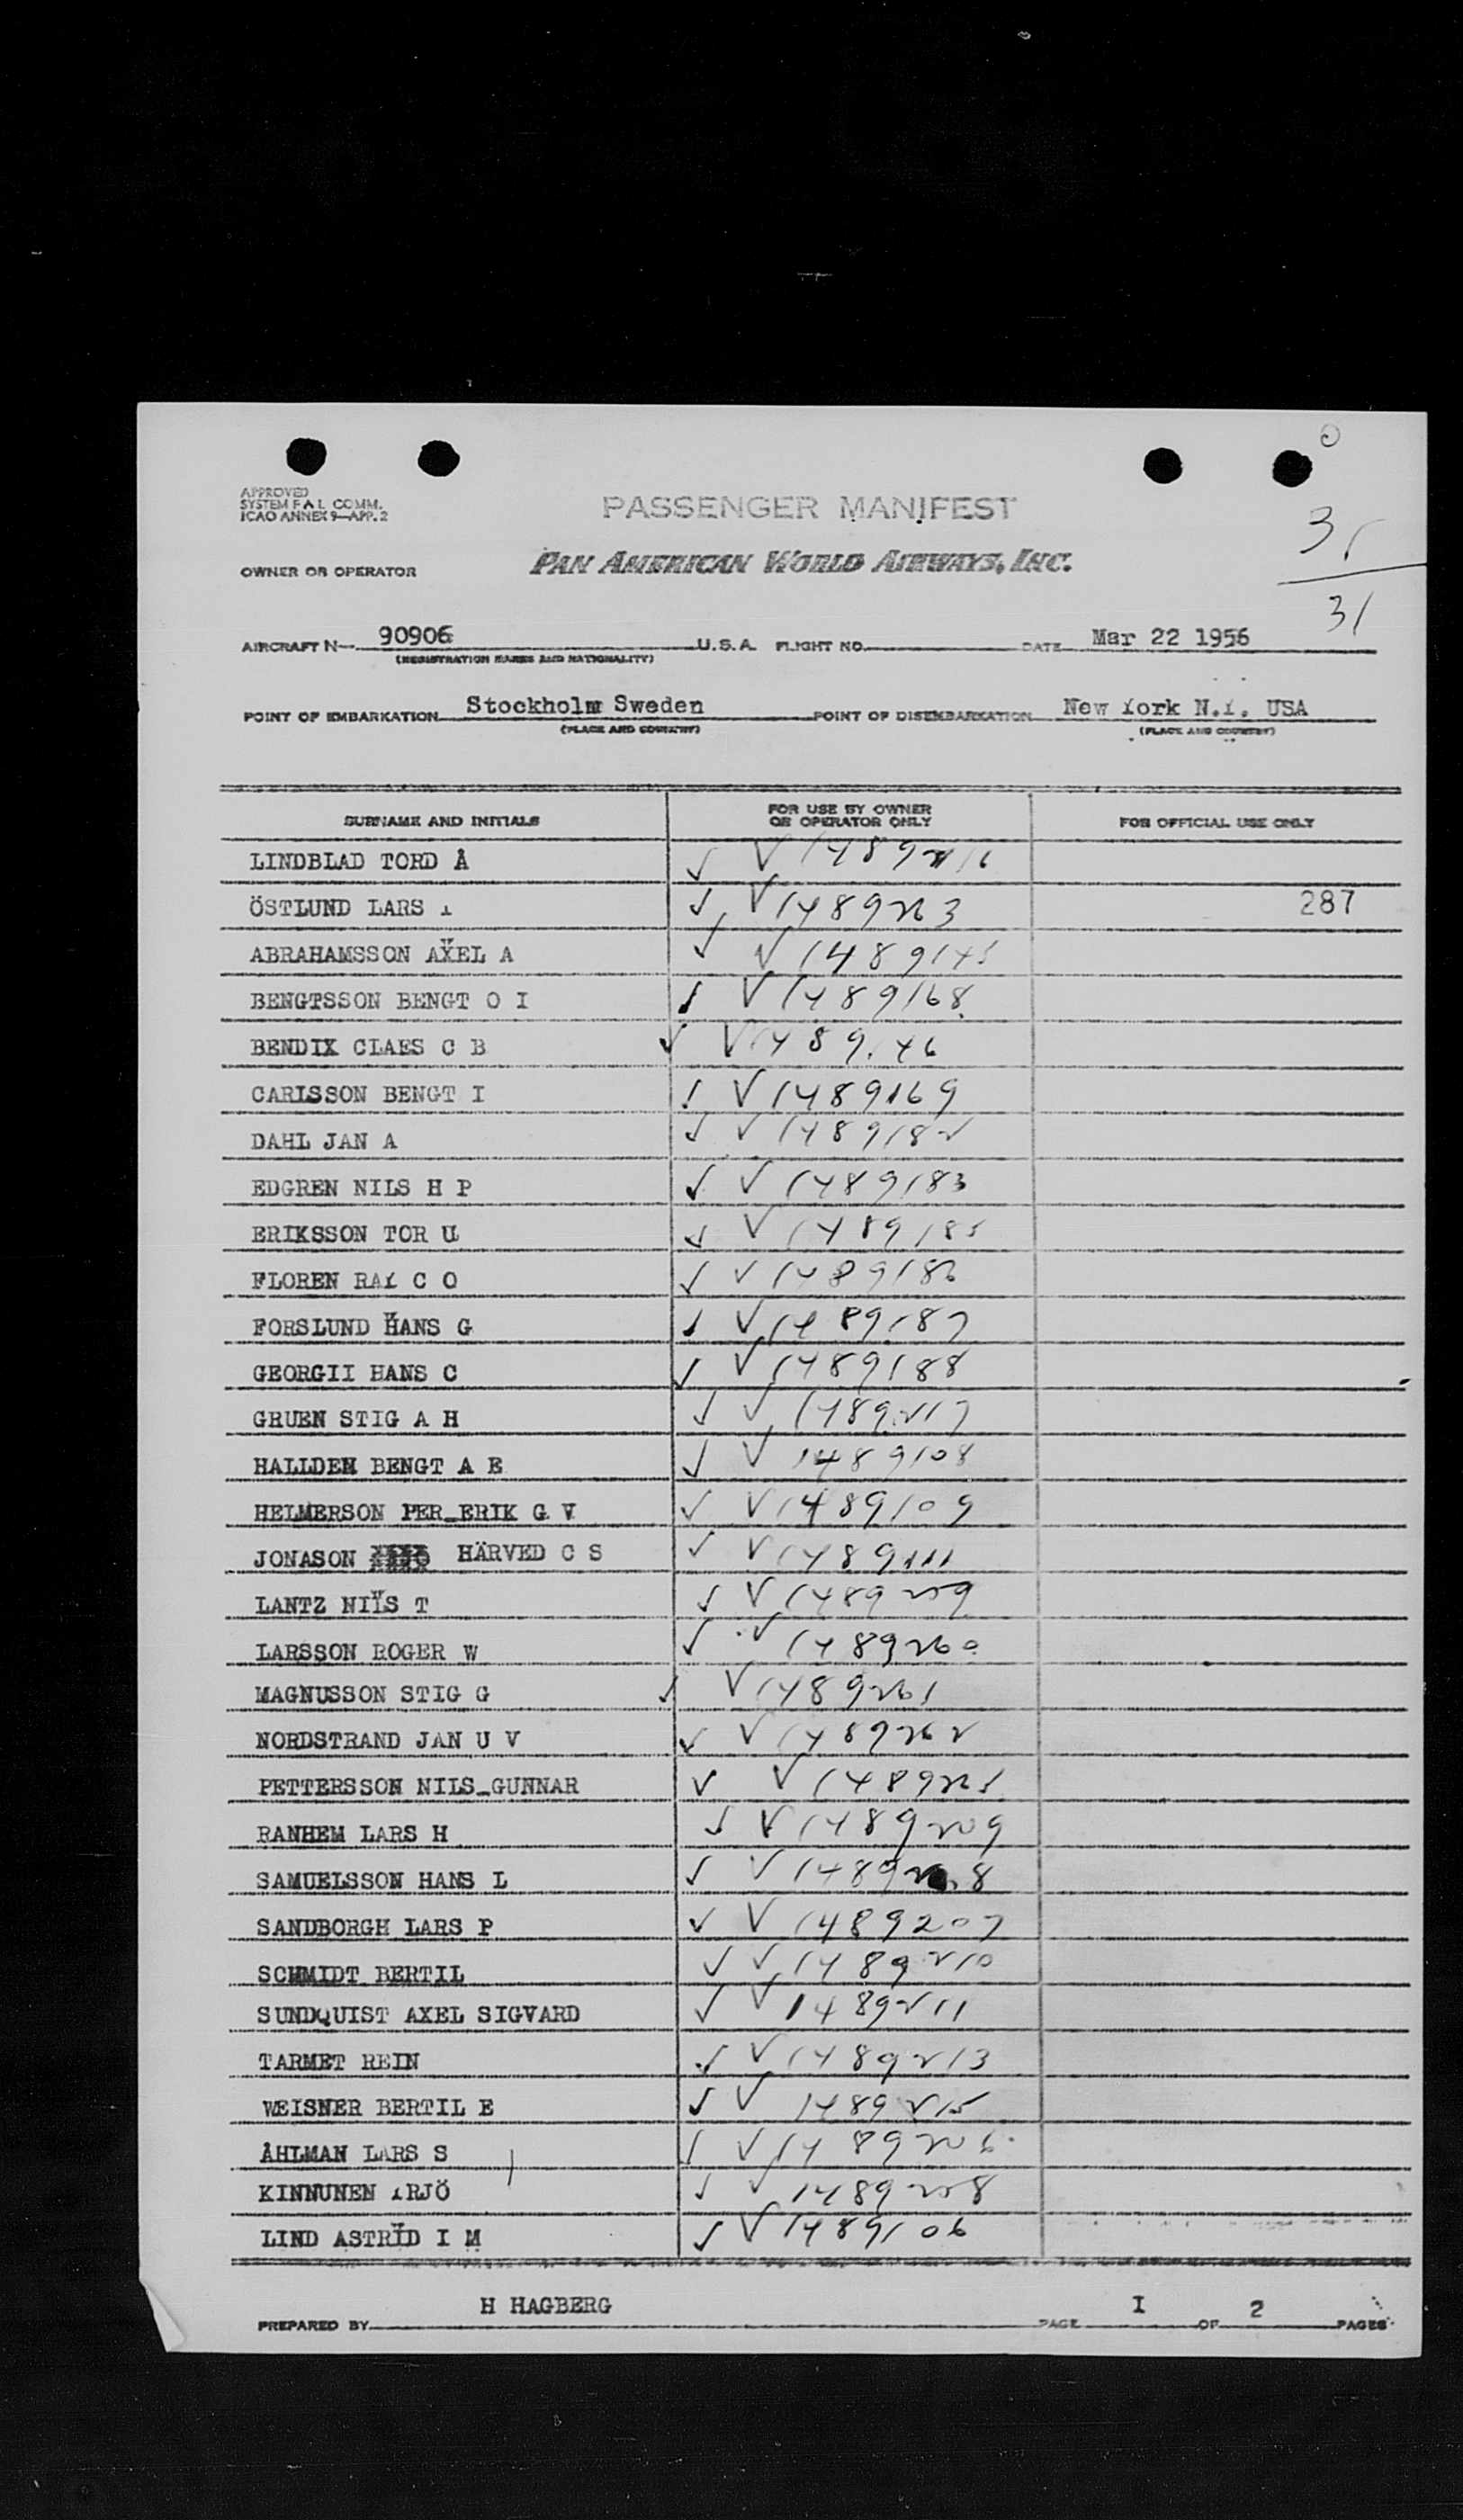 APPROVED
SYSTEM F A L COMM.
ICAO ANNEX 9—APP. 2
PASSENGER MANIFEST
31
OWNER OR OPERATOR PAN AMERICAN WORLD AIRWAYS, INC.
31
AIRCRAFT N— 90906 U.S.A. FLIGHT NO. DATE Mar 22 1956
(REGISTRATION MARKS AND NATIONALITY)
POINT OF EMBARKATION Stockholm Sweden POINT OF DISEMBARKATION New York N.Y. USA
(PLACE AND COUNTRY) (PLACE AND COUNTRY)
SURNAME AND INITIALS FOR USE BY OWNER OR OPERATOR ONLY FOR OFFICIAL USE ONLY
LINDBLAD TORD Å ✓ ✓
ÖSTLUND LARS Y ✓ ✓ 1489263 287
ABRAHAMSSON AXEL A ✓ ✓ 1489145
BENGTSSON BENGT O I ✓ ✓ 1489168
BENDIX CLAES C B ✓ ✓ 1489146
CARLSSON BENGT I ✓ ✓ 1489169
DAHL JAN A ✓ ✓ 1489182
EDGREN NILS H P ✓ ✓ 1489183
ERIKSSON TOR U ✓ ✓ 1489185
FLOREN RAY C O ✓ ✓ 1489186
FORSLUND HANS G ✓ ✓ 1489187
GEORGII HANS C ✓ ✓ 1489188
GRUEN STIG A H ✓ ✓ 1489217
HALLDEN BENGT A E ✓ ✓ 1489108
HELMERSON PER-ERIK G V ✓ ✓ 1489109
JONASON HÄRVED C S ✓ ✓ 1489111
LANTZ NILS T ✓ ✓ 1489259
LARSSON ROGER W ✓ ✓ 1489260
MAGNUSSON STIG G ✓ ✓ 1489261
NORDSTRAND JAN U V ✓ ✓ 1489262
PETTERSSON NILS-GUNNAR ✓ ✓
RANHEM LARS H ✓ ✓ 1489209
SAMUELSSON HANS L ✓ ✓
SANDBORGH LARS P ✓ ✓ 1489207
SCHMIDT BERTIL ✓ ✓ 1489210
SUNDQUIST AXEL SIGVARD ✓ ✓ 1489211
TARMET REIN ✓ ✓ 1489213
WEISNER BERTIL E ✓ ✓ 1489215
ÅHLMAN LARS S ✓ ✓ 1489206
KINNUNEN YRJÖ ✓ ✓ 1489258
LIND ASTRID I M ✓ ✓ 1489106
PREPARED BY H HAGBERG PAGE I OF 2 PAGES